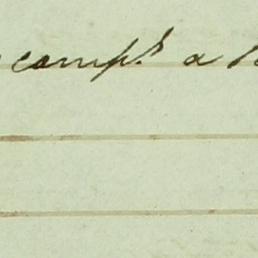 camp.t a